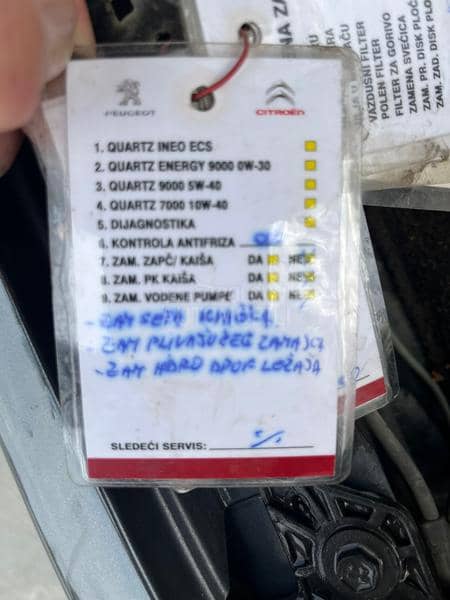 PEUGEOT
CITROËN
1. QUARTZ INEO ECS
2. QUARTZ ENERGY 9000 0W-30
3. QUARTZ 9000 5W-40
4. QUARTZ 7000 10W-40
5. DIJAGNOSTIKA
6. KONTROLA ANTIFRIZA
7. ZAM. ZAPČ/ KAIŠA DA NE
8. ZAM. PK KAIŠA DA NE
9. ZAM. VODENE PUMPE DA NE
- ZAM SETA KVAČILA
- ZAM PLIVAJUĆEG ZAMAJCA
- ZAM HIDRO DRUK LEŽAJA
SLEDEĆI SERVIS:
VAZDUSNI FILTER
POLEN FILTER
FILTER ZA GORIVO
ZAMENA SVEĆICA
ZAM. PR. DISK PLOČ
ZAM. ZAD. DISK PLO